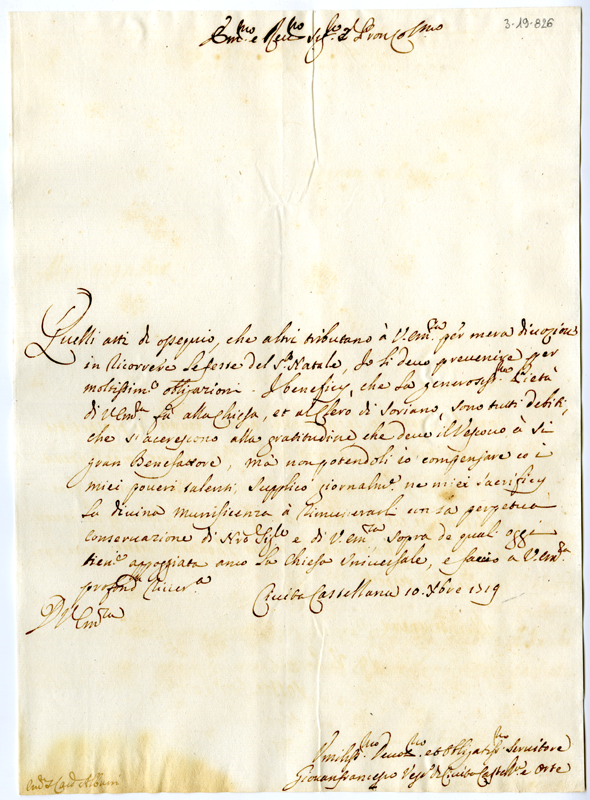 3-19-826
Em.mo e Rev.mo Sig.re P̄ron Col.mo
Quelli atti di ossequio, che altri tributano à V. Em.za per mera divozione
in ricorrere le feste del S.to Natale, Io li devo prevenire per
moltissim.e obligazioni. I beneficj, che la generosiss.ma Pietà
di V. Em.za fà alla Chiesa, et al Clero di Soriano, sono tutti debiti,
che s'accrescono alla gratitudine che deve il Vescovo à sì
gran Benefattore, mà non potendoli io compensare co i
miei poveri talenti, supplico giornalm.e ne miei sacrificj
la divina munificenza à rimunerarli con la perpetua
conservazione di Nro Sig.re e di V. Em.za sopra de quali oggi
tien.e appoggiata anco la Chiesa Universale, e faccio à V. Em.za
profond.a river.a
Civita Castellana 10 Xbre 1719
D V Em.za
Umiliss.mo Devot.mo et Obligatiss.mo Servitore
Giovanfrancesco Vesc.o di Civita Castell.a e Orte
Card. Albani